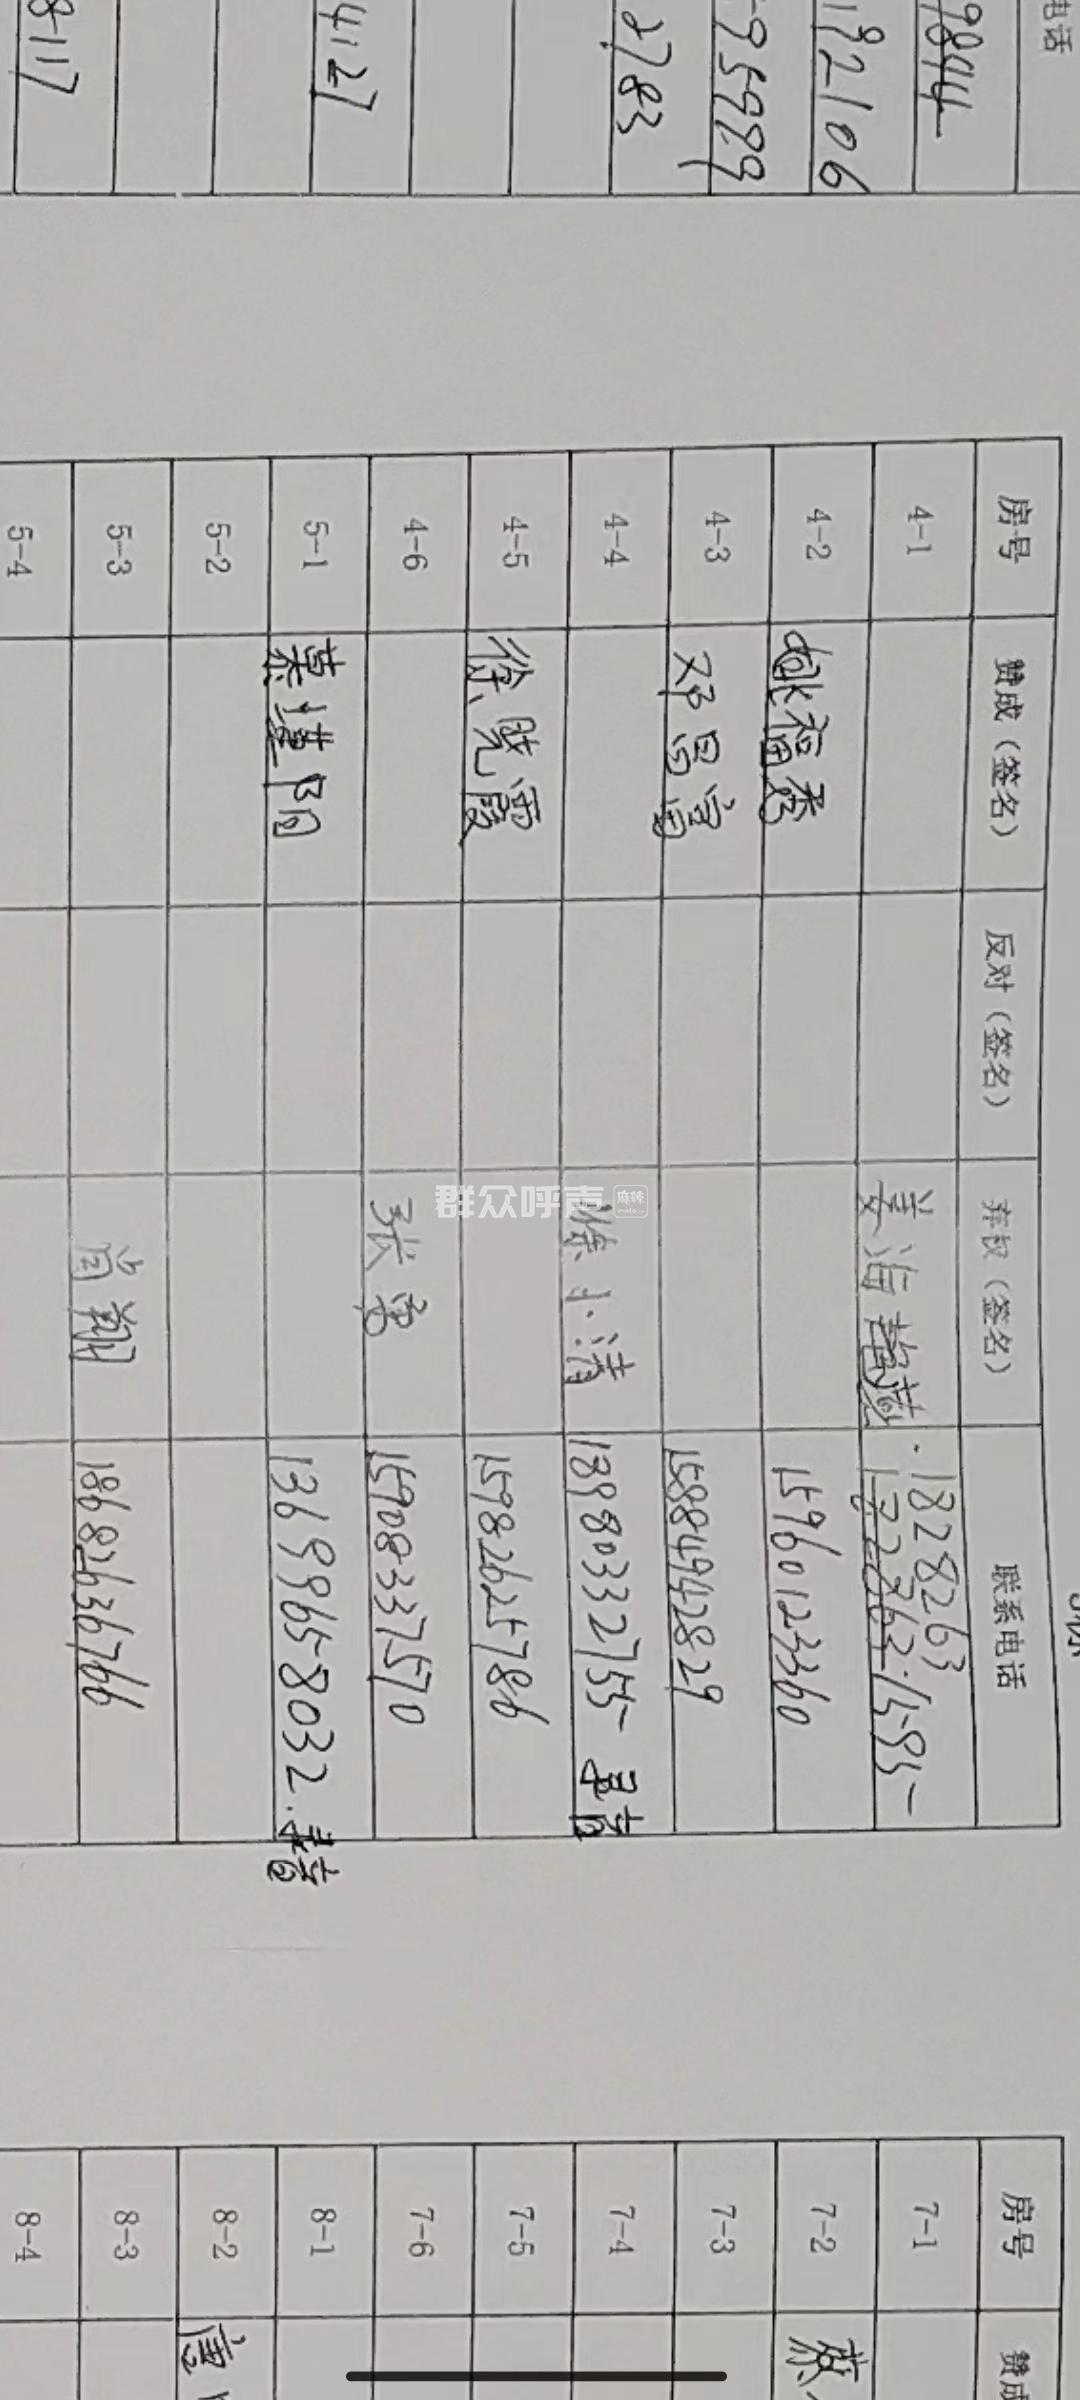 电话
9894
192106
95999
2783
4127
8-117
房号 赞成（签名） 反对（签名） 弃权（签名） 联系电话
4-1 姜海 1828263 1585
4-2 姚福秀 15960123360
4-3 邓昌富 15884942829
4-4 徐小清 13980332755
4-5 徐晓霞 15982625786
4-6 张勇 15908337570
5-1 建阳 13699658032
5-2
5-3 肖翔 18682636766
5-4
房号 赞成
7-1
7-2
7-3
7-4
7-5
7-6
8-1
8-2 唐
8-3
8-4
群众呼声 麻辣